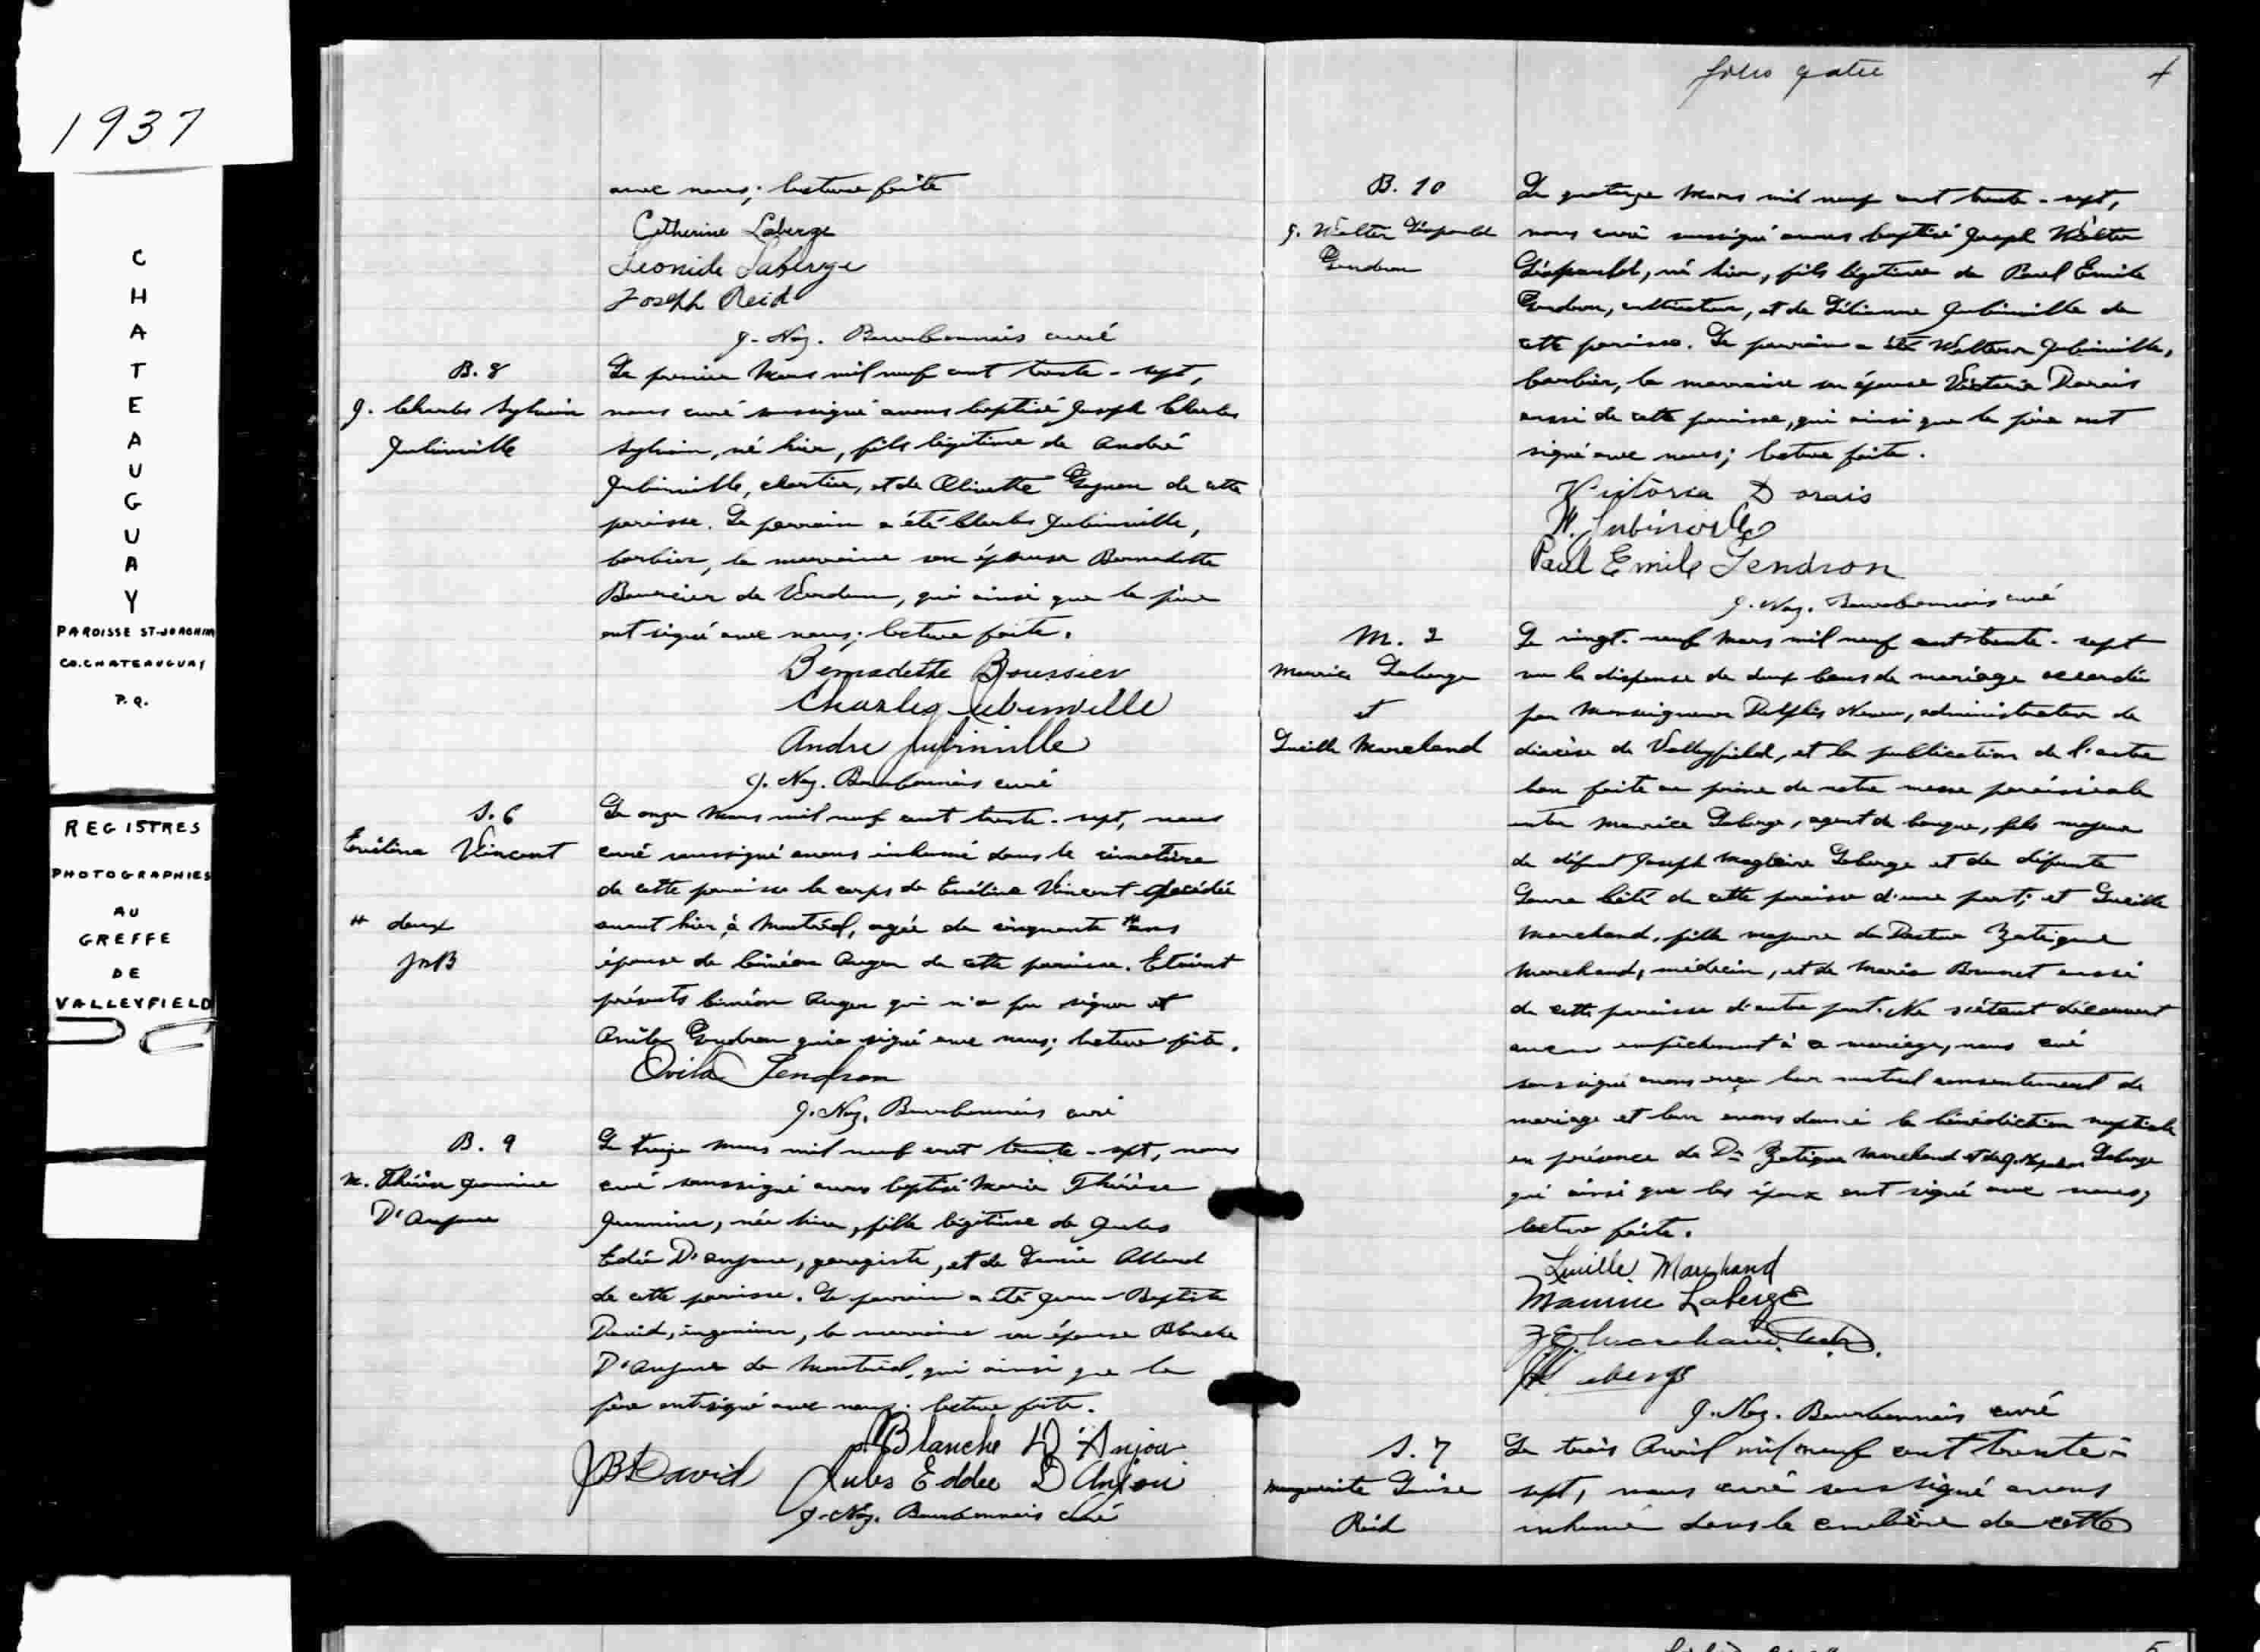 1937
CHATEAUGUAY
PAROISSE ST-JOACHIM
CO. CHATEAUGUAY
P.Q.
REGISTRES
PHOTOGRAPHIES
AU
GREFFE
DE
VALLEYFIELD
avec nous; lecture faite
Catherine Laberge
Leonide Laberge
Joseph Reid
J. Naz. Bourbonnais curé
B. 8
J. Charles Sylvain
Jubinville
Le premier Mars mil neuf cent trente-sept,
nous curé soussigné avons baptisé Joseph Charles
Sylvain, né hier, fils légitime de André
Jubinville, et de Olivette Gagnon de cette
paroisse. Le parrain a été Charles Jubinville,
barbier, la marraine son épouse Bernadette
Boursier de Verdun, qui ainsi que le père
ont signé avec nous; lecture faite.
Bernadette Boussier
Charles Jubinville
Andre Jubinville
J. Naz. Bourbonnais curé
S. 6
Vincent
# deux
JNB
Le onze Mars mil neuf cent trente-sept, nous
curé soussigné avons inhumé dans le cimetière
de cette paroisse le corps de Vincent décédée
avant hier, à Montréal, agée de cinquante # ans
épouse de Siméon Auger de cette paroisse. Etaient
présents Siméon Auger qui n'a pu signer et
Ovila Gendron qui a signé avec nous; lecture faite.
Ovila Gendron
J. Naz. Bourbonnais curé
B. 9
M. Thérèse Jeannine
D'Anjou
Le treize Mars mil neuf cent trente-sept, nous
curé soussigné avons baptisé Marie Thérèse
Jeannine, née hier, fille légitime de Jules
Edée D'Anjou, garagiste, et de Allard
de cette paroisse. Le parrain a été Jean-Baptiste
David, ingénieur, la marraine son épouse Blanche
D'Anjou de Montréal, qui ainsi que le
père ont signé avec nous; lecture faite.
Blanche D'Anjou
JBt David Jules Eddee D'Anjou
J. Naz. Bourbonnais curé
folio quatre 4
B. 10
J. Walter Léopold
Gendron
Le quatorze Mars mil neuf cent trente-sept,
nous curé soussigné avons baptisé Joseph Walter
Léopold, né hier, fils légitime de Paul Emile
Gendron, cultivateur, et de Lilianne Jubinville de
cette paroisse. Le parrain a été Jubinville,
barbier, la marraine son épouse Victoria Dorais
aussi de cette paroisse, qui ainsi que le père ont
signé avec nous; lecture faite.
Victoria Dorais
W. Jubinville
Paul Emile Gendron
J. Naz. Bourbonnais curé
M. 2
Maurice Laberge
et
Lucille Marchand
Le vingt-neuf Mars mil neuf cent trente-sept
vu la dispense de deux bans de mariage accordée
par Monseigneur Delphis Neveu, administrateur du
diocèse de Valleyfield, et la publication de l'autre
ban faite au prône de notre messe paroissiale
entre Maurice Laberge, agent de banque, fils majeur
de défunt Joseph Magloire Laberge et de défunte
Laura de cette paroisse d'une part; et Lucille
Marchand, fille majeure du Docteur Zotique
Marchand, médecin, et de Maria Brunet aussi
de cette paroisse d'autre part. Ne s'étant découvert
aucun empêchement à ce mariage, nous curé
soussigné avons reçu leur mutuel consentement de
mariage et leur avons donné la bénédiction nuptiale
en présence de Dr Zotique Marchand et de Laberge
qui ainsi que les époux ont signé avec nous;
lecture faite.
Lucille Marchand
Maurice Laberge
Marchand
J. Naz. Bourbonnais curé
S. 7
Marguerite Louise
Reid
Le trois Avril mil neuf cent trente-
sept, nous curé soussigné avons
inhumé dans le cimetière de cette
5